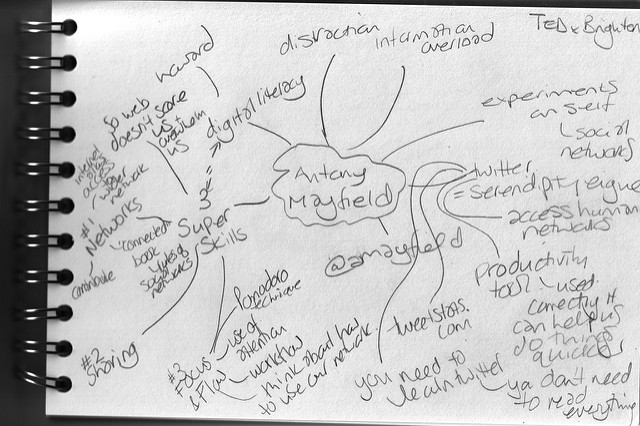 TEDxBrighton
distraction
information
overload
howard
digital literacy
so web
doesn't scare
us +
overwhelm
us
experiments
on self
social
networks
Antony
Mayfield
@amayfield
twitter
= serendipity
access human
networks
productivity
tool
used
correctly it
can help us
do things
quicker
ya don't need
to read
everything
you need to
learn twitter
tweetstats.
com
3 Super
Skills
#1
Networks
contribute
access
network
connected
book
networks
#2
Sharing
#3
Focus
& Flow
Pomodoro
technique
use of
attention
workflow
think about how
to use our network